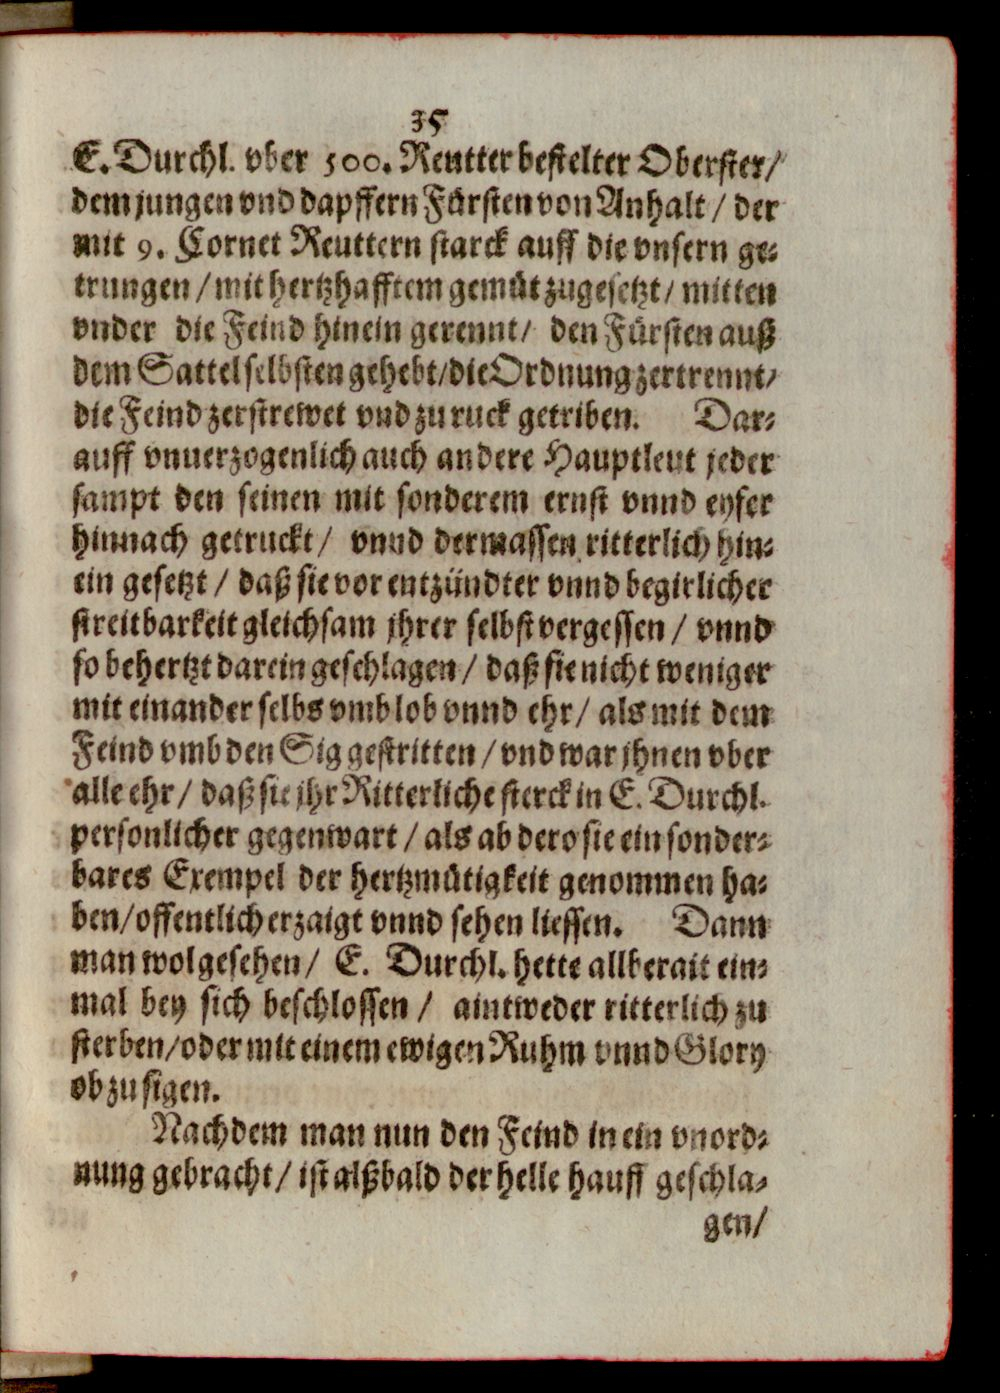 35
E. Durchl. vber 500. Reutter bestelter Oberster/
dem jungen vnd dapffern Fürsten von Anhalt / der
mit 9. Cornet Reuttern starck auff die vnsern ge-
trungen / mit hertzhafftem gemüt zugesetzt / mitten
vnder die Feind hinein gerennt / den Fürsten auß
dem Sattel selbsten gehebt / die Ordnung zertrennt /
die Feind zerstrewet vnd zu ruck getriben. Dar-
auff vnuerzogenlich auch andere Hauptleut jeder
sampt den seinen mit sonderem ernst vnnd eyfer
hinnach getruckt / vnnd dermassen ritterlich hin-
ein gesetzt / daß sie vor entzündter vnnd begirlicher
streitbarkeit gleichsam jhrer selbst vergessen / vnnd
so behertzt darein geschlagen / daß sie nicht weniger
mit einander selbs vmb lob vnnd ehr / als mit dem
Feind vmb den Sig gestritten / vnd war jhnen vber
alle ehr / daß sie jhr Ritterliche sterck in E. Durchl.
personlicher gegenwart / als ab dero sie ein sonder-
bares Exempel der hertzmütigkeit genommen ha-
ben / offentlich erzaigt vnnd sehen liessen. Dann
man wol gesehen / E. Durchl. hette allberait ein-
mal bey sich beschlossen / aintweder ritterlich zu
sterben / oder mit einem ewigen Ruhm vnnd Glory
ob zu sigen.
Nachdem man nun den Feind in ein vnord-
nung gebracht / ist alßbald der helle hauff geschla-
gen /